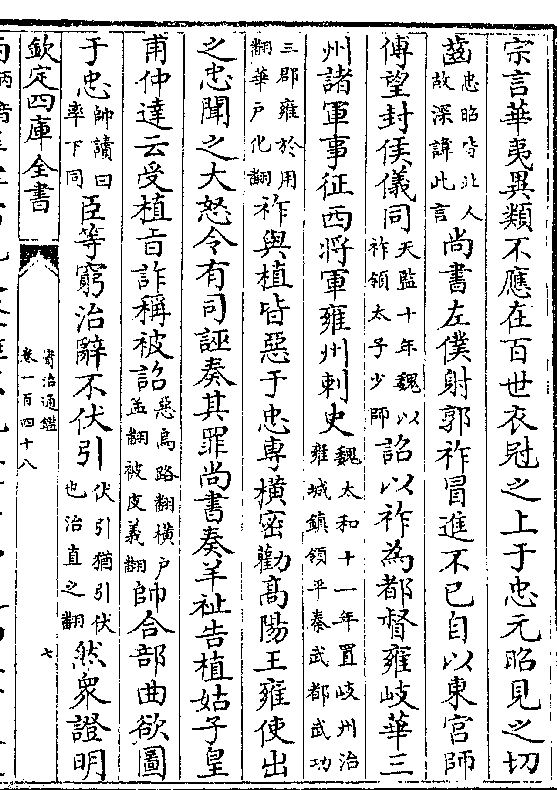 宗言華夷異類不應在百世衣冠之上于忠元昭見之切
齒忠昭皆北人故深諱此言尚書左僕射郭祚冒進不已自以東宫師
傅望封侯儀同天監十年魏以祚領太子少師詔以祚為都督雍岐華三
州諸軍事征西將軍雍州刺史魏太和十一年置岐州治雍城鎮領平秦武都武功
三郡雍於用翻華戶化翻祚與植皆惡于忠專横密勸高陽王雍使出
之忠聞之大怒令有司誣奏其罪尚書奏羊祉告植姑子皇
甫仲達云受植旨詐稱被詔惡烏路翻横戶孟翻被皮義翻帥合部曲欲圖
于忠帥讀曰率下同臣等窮治辭不伏引伏引猶引伏也治直之翻然衆證明
欽定四庫全書
資治通鑑
卷一百四十八
七